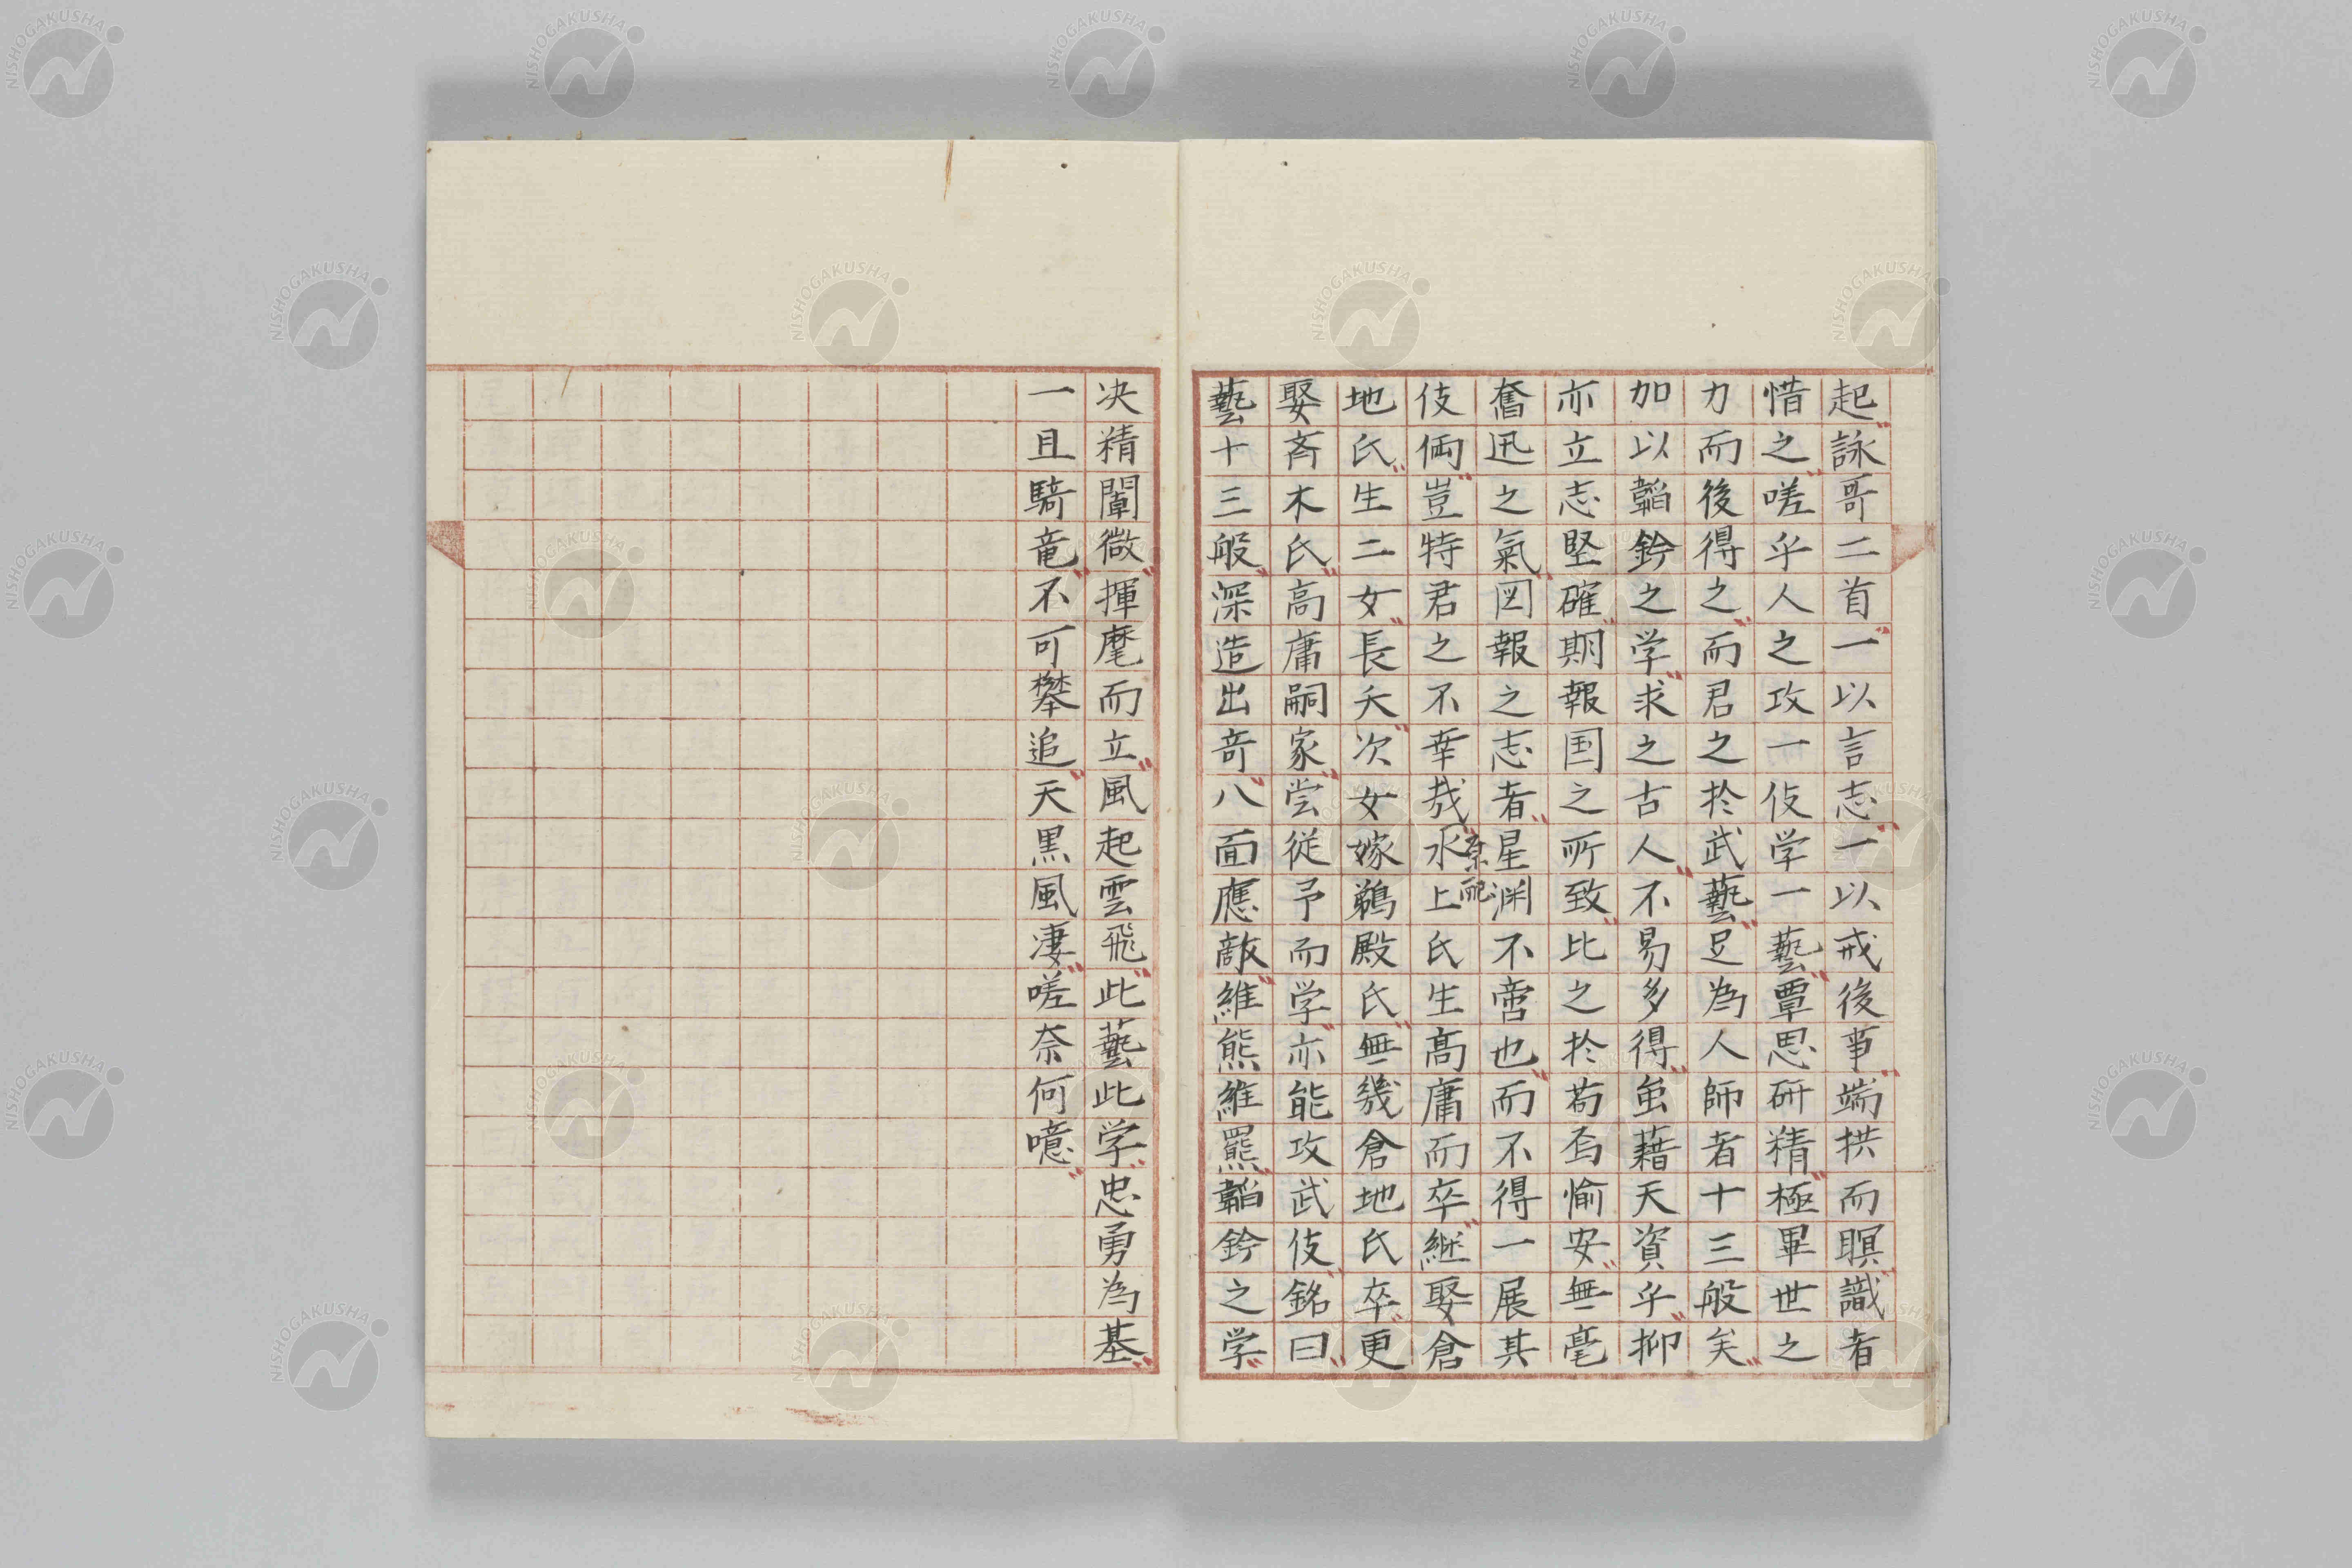 起詠哥二首一以言志一以戒後事端拱而瞑識者
惜之嗟乎人之攻一伎学一藝覃思研精極畢世之
力而後得之而君之於武藝足為人師者十三般矣
加以韜鈐之学求之古人不易多得虽藉天資乎抑
亦立志堅確期報国之所致比之於苟偷安無毫
奮迅之氣図報之志者星渊不啻也而不得一展其
伎倆豈特君之不幸哉水上氏生髙庸而卒継娶倉
原配
地氏生二女長夭次女嫁鵜殿氏無幾倉地氏卒更
娶斉木氏高庸嗣家尝従予而学亦能攻武伎銘曰
藝十三般深造出奇八面應敵維熊維羆韜鈐之学
决精闡微揮麾而立風起雲飛此藝此学忠勇為基
一旦騎竜不可攀追天黒風凄嗟奈何噫
NISHOGAKUSHA